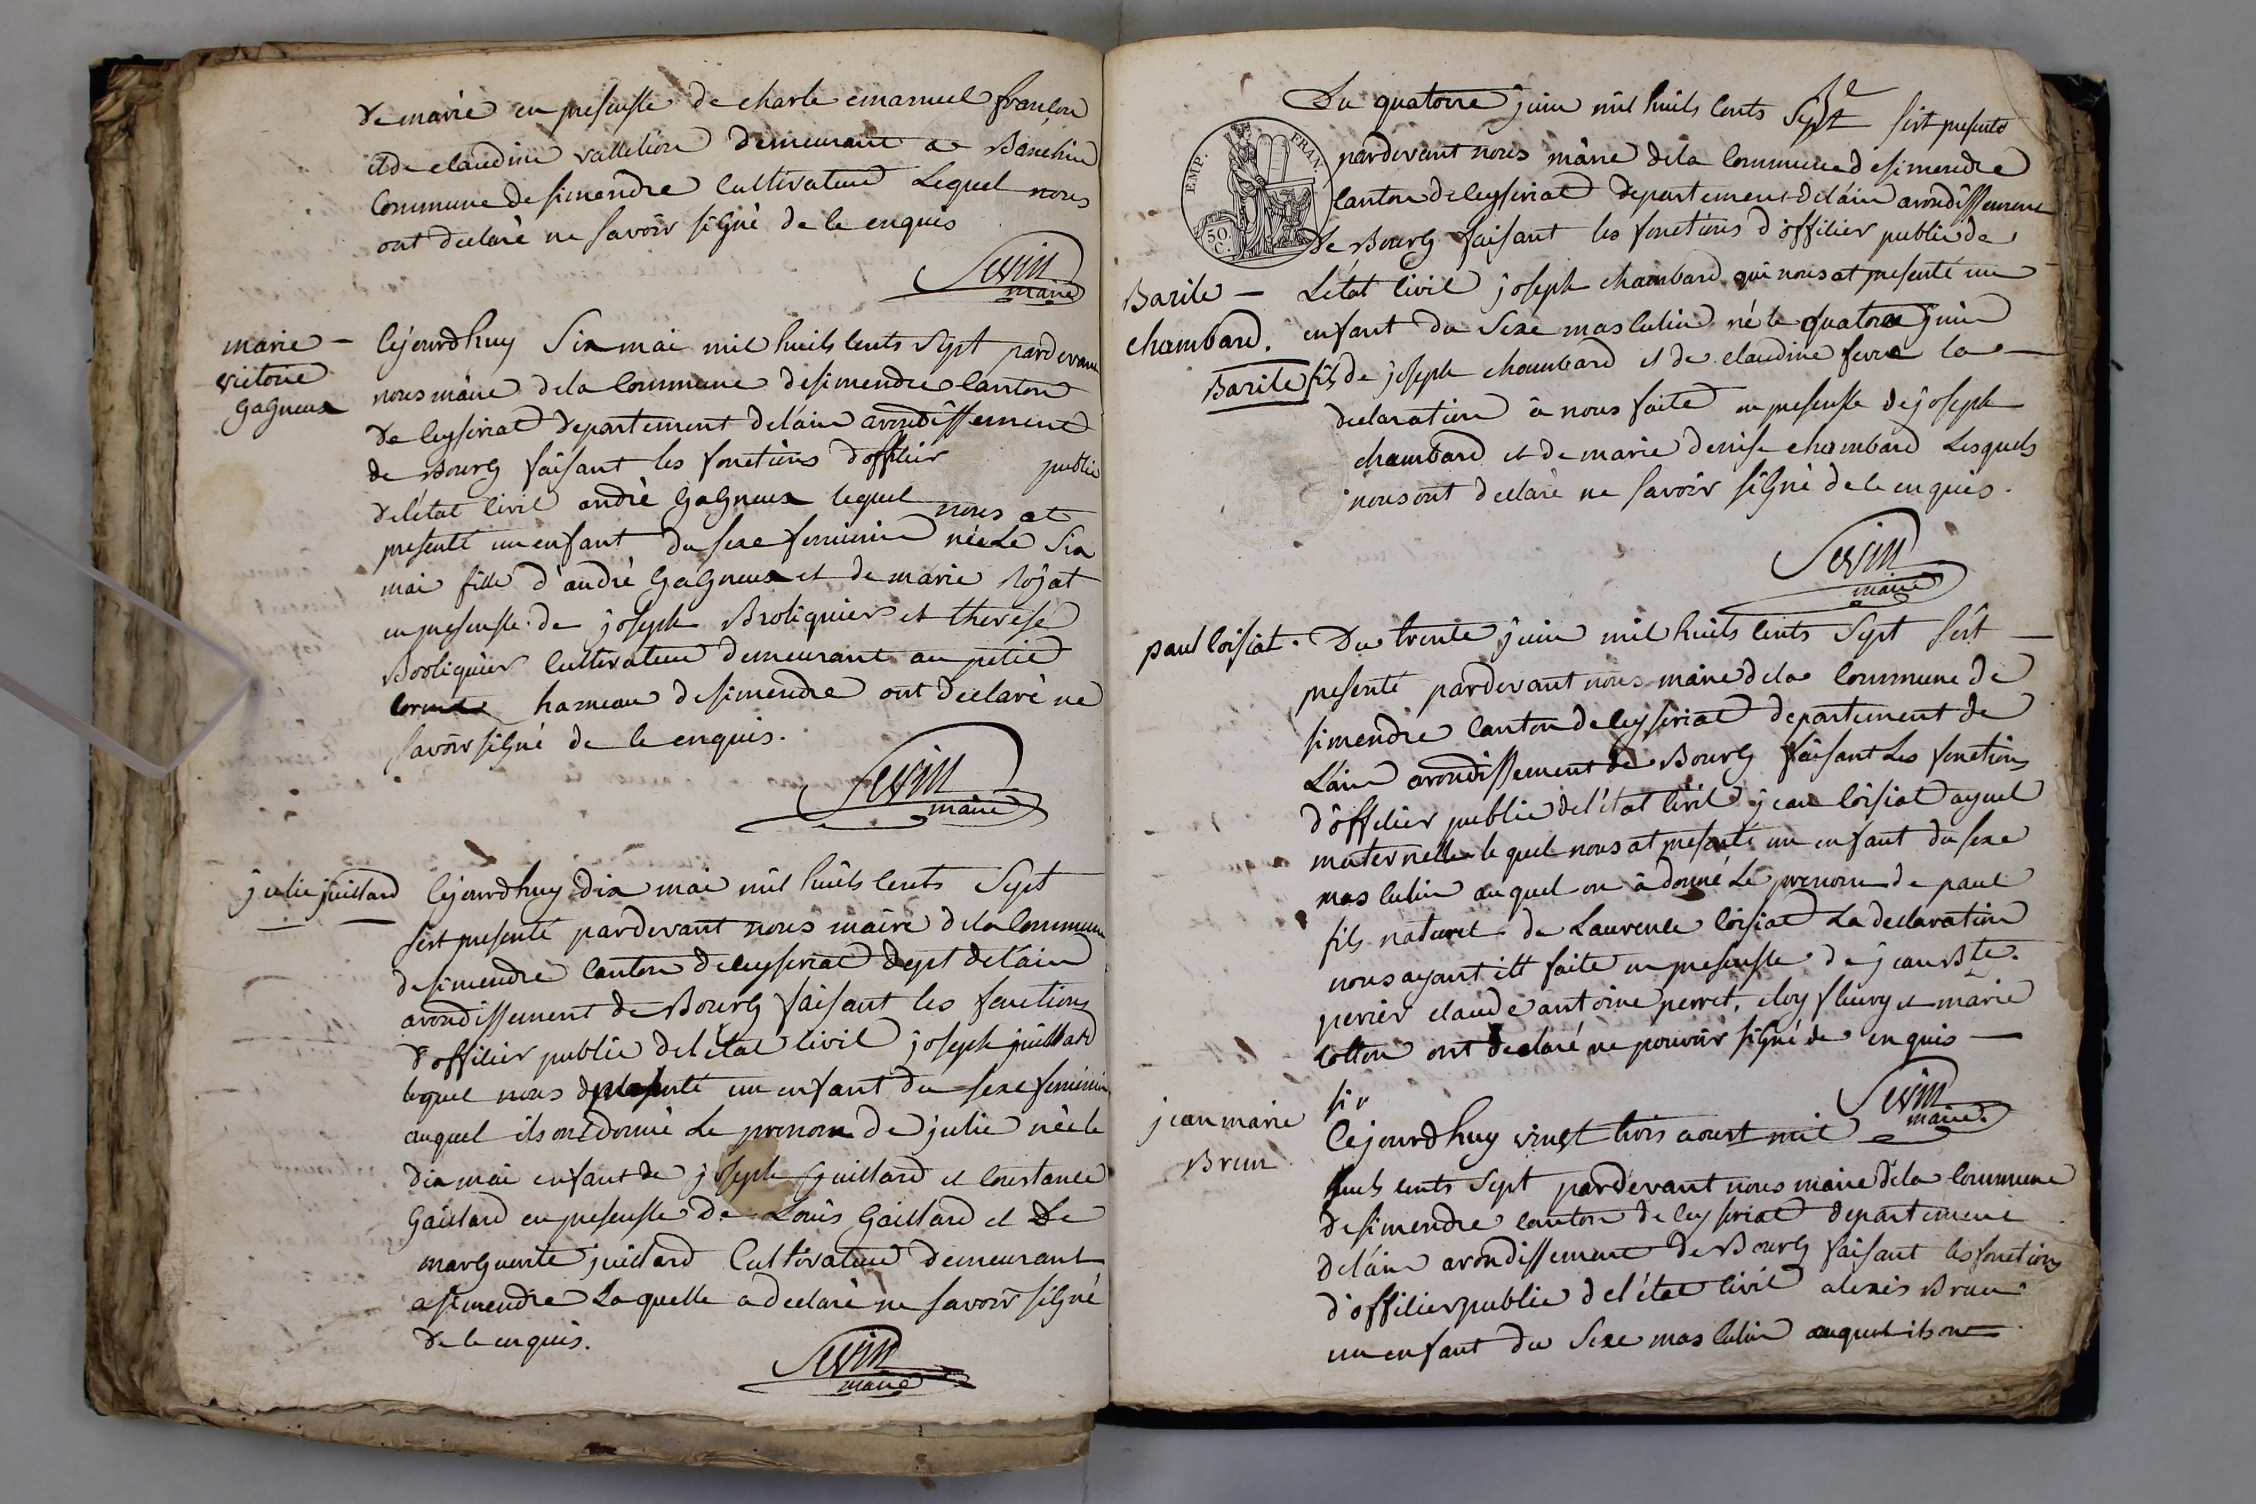 de marie en presensse de charle emanuel françon
et de claudine vallelion demeurant a Banchin
Commune de simendre Cultivateur Lequel nous
ont declaré ne savoir signé de le enquis
Sevin
maire
marie -
victoire
gagneux
Cejourdhuy Six mai mil huils cents sept pardevant
nous maire dela Commune de simendre canton
de ceyseriat departement delain arondissement
de Bourg faisant les fonctions d'officier public
delétat civil andré gagneux lequel nous at
presenté un enfant du sexe feminin née Le Six
mai fille d'andré gagneux et de marie rojat
en presensse de joseph Broliquier et therese
Broliquier Cultivateur demeurant au petit
hameau de simendre ont declaré ne
savoir signé de le enquis.
Sevin
maire
julie juillard
Cejourdhuy dix mai mil huils cents Sept
s'est presenté pardevant nous maire dela Commune
de simendre canton de ceyseriat dept delain
arondissement de Bourg faisant les fonctions
d'officier public del'état civil joseph juillard
lequel nous presenté un enfant du sexe feminin
auquel ils ont donné Le prenom de julie née le
dix mai enfant de joseph juillard et Constance
Gaillard en presensse de Louis Gaillard et De
marguerite juillard Cultivateur demeurant
a simendre Laquelle a declaré ne savoir signé
de le enquis.
Sevin
maire
Du quatorze juin mil huils cents Sept s'est presenté
EMP. FRAN.
50 C.
pardevant nous maire dela Commune de simendre
Canton de ceyseriat departement delain arondissement
de Bourg faisant les fonctions d'officier public de
Bazile -
chambard.
Bazile
L'état civil joseph chambard qui nous at presenté un
enfant du Sexe masculin né le quatorze juin
fils de joseph chambard et de claudine fevre la -
declaration à nous faite en presensse de joseph
chambard et de marie denise chambard Lesquels
nous ont declaré ne savoir signé de le enquis.
Sevin
maire
paul loisiat.
Du trente juin mil huils cents Sept s'est -
presenté pardevant nous maire dela Commune de
simendre Canton de ceyseriat departement de
L'ain arondissement de Bourg faisant Les fonctions
d'officier public del'état civil jean loisiat ayeul
maternelle lequel nous at presenté un enfant du sexe
masculin auquel on à donné Le prenom de paul
fils naturel de Laurence loisiat La declaration
nous ayant ett faite en presensse de jean Bte.
perier claude antoine perret, eloy fleury et marie
Cotton ont declaré ne pouvoir signé de enquis -
Sevin
maire.
jean marie
Brun
Cejourdhuy vingt trois aoust mil
huils cents Sept pardevant nous maire dela Commune
de simendre canton de ceyseriat departement
delain arondissement de Bourg faisant les fonctions
d'officier public del'état civil alexis Brun
un enfant du Sexe masculin auquel ils ont